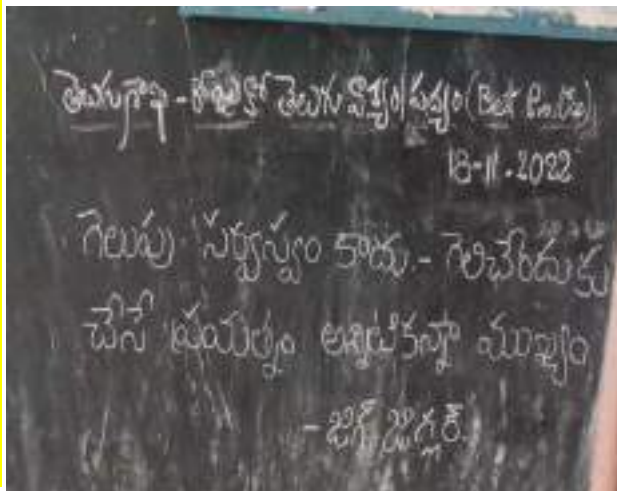 తెలుగు - రోజుకో తెలుగు వాక్యం/పద్యం (
18-11-2022
గెలుపు సర్వస్వం కాదు - గెలిచేందుకు
చేసే ప్రయత్నం అన్నిటికన్నా ముఖ్యం
- జిగ్ జిగ్లర్.